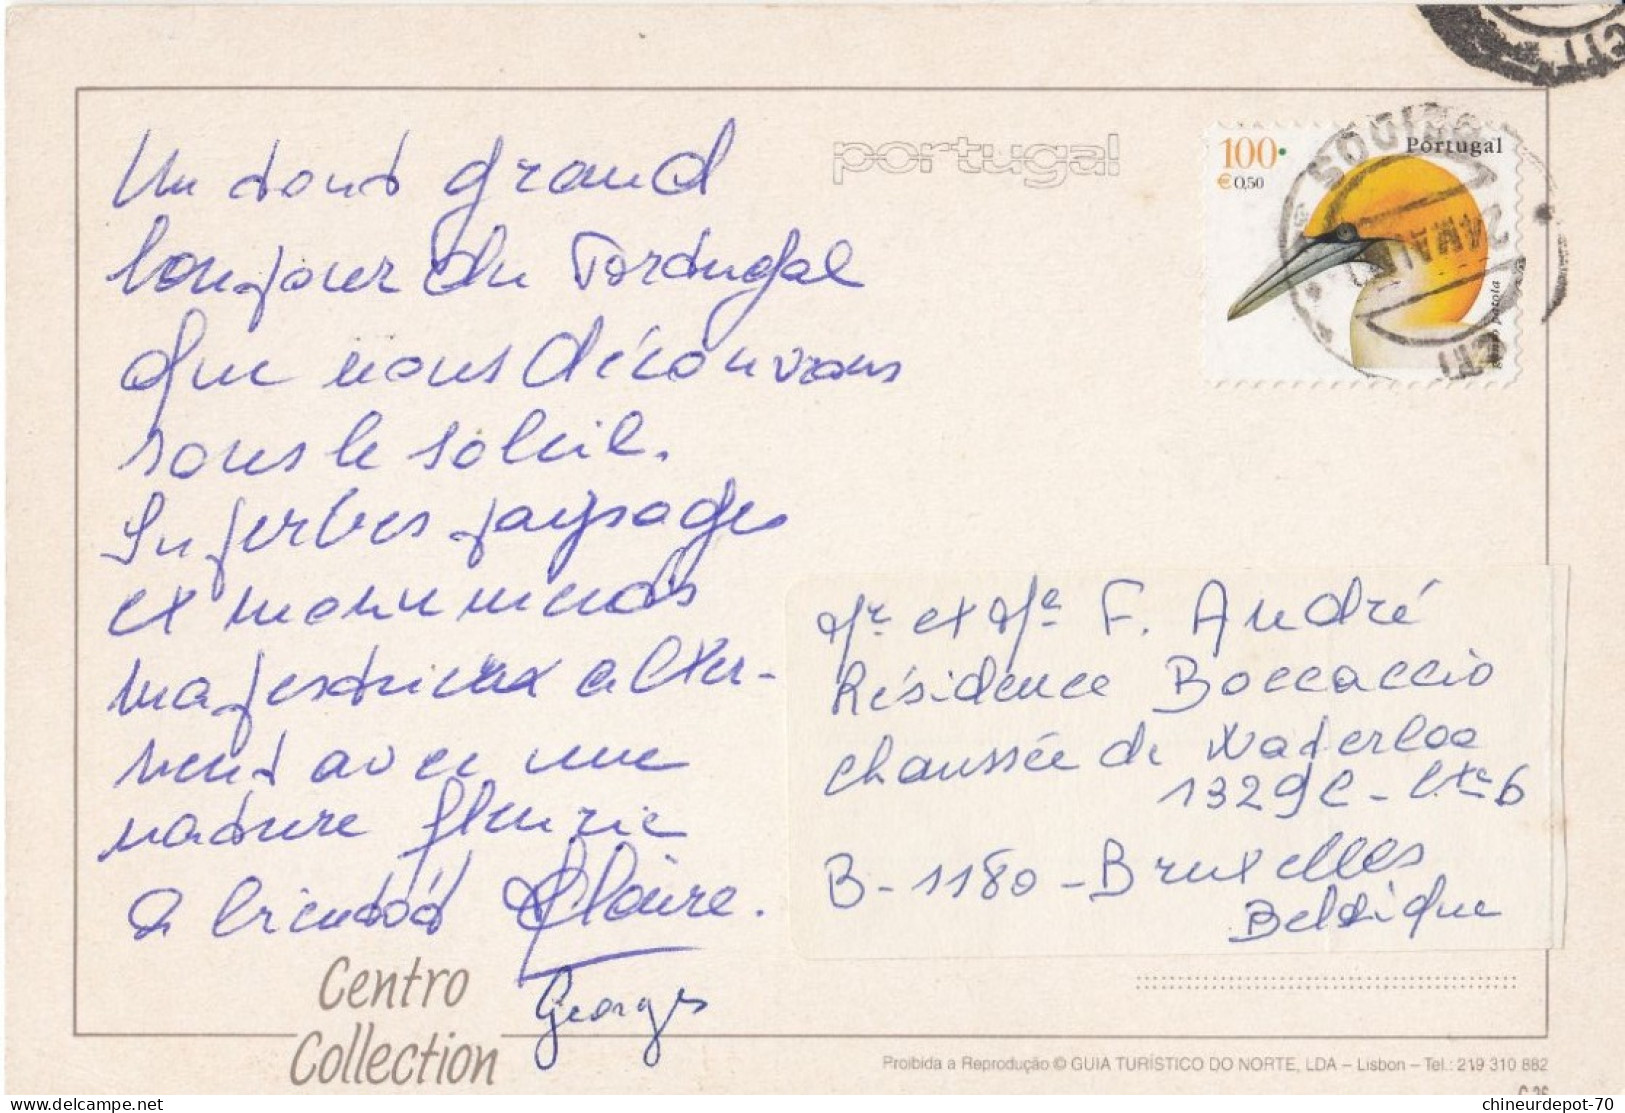 Un tout grand
bonjour du Portugal
que nous découvrons
sous le soleil.
Superbes paysages
et monuments
majestueux alter-
nent avec une
nature fleurie
A bientôt Claire.
Georges
Centro
Collection
portugal
100
€0,50
Portugal
CTT
CTT
Mr et Me F. André
Résidence Boccaccio
chaussée de Waterloo
1329C - bte 6
B-1180-Bruxelles
Belgique
Proibida a Reprodução © GUIA TURÍSTICO DO NORTE, LDA – Lisbon – Tel.: 219 310 882
chineurdepot-70